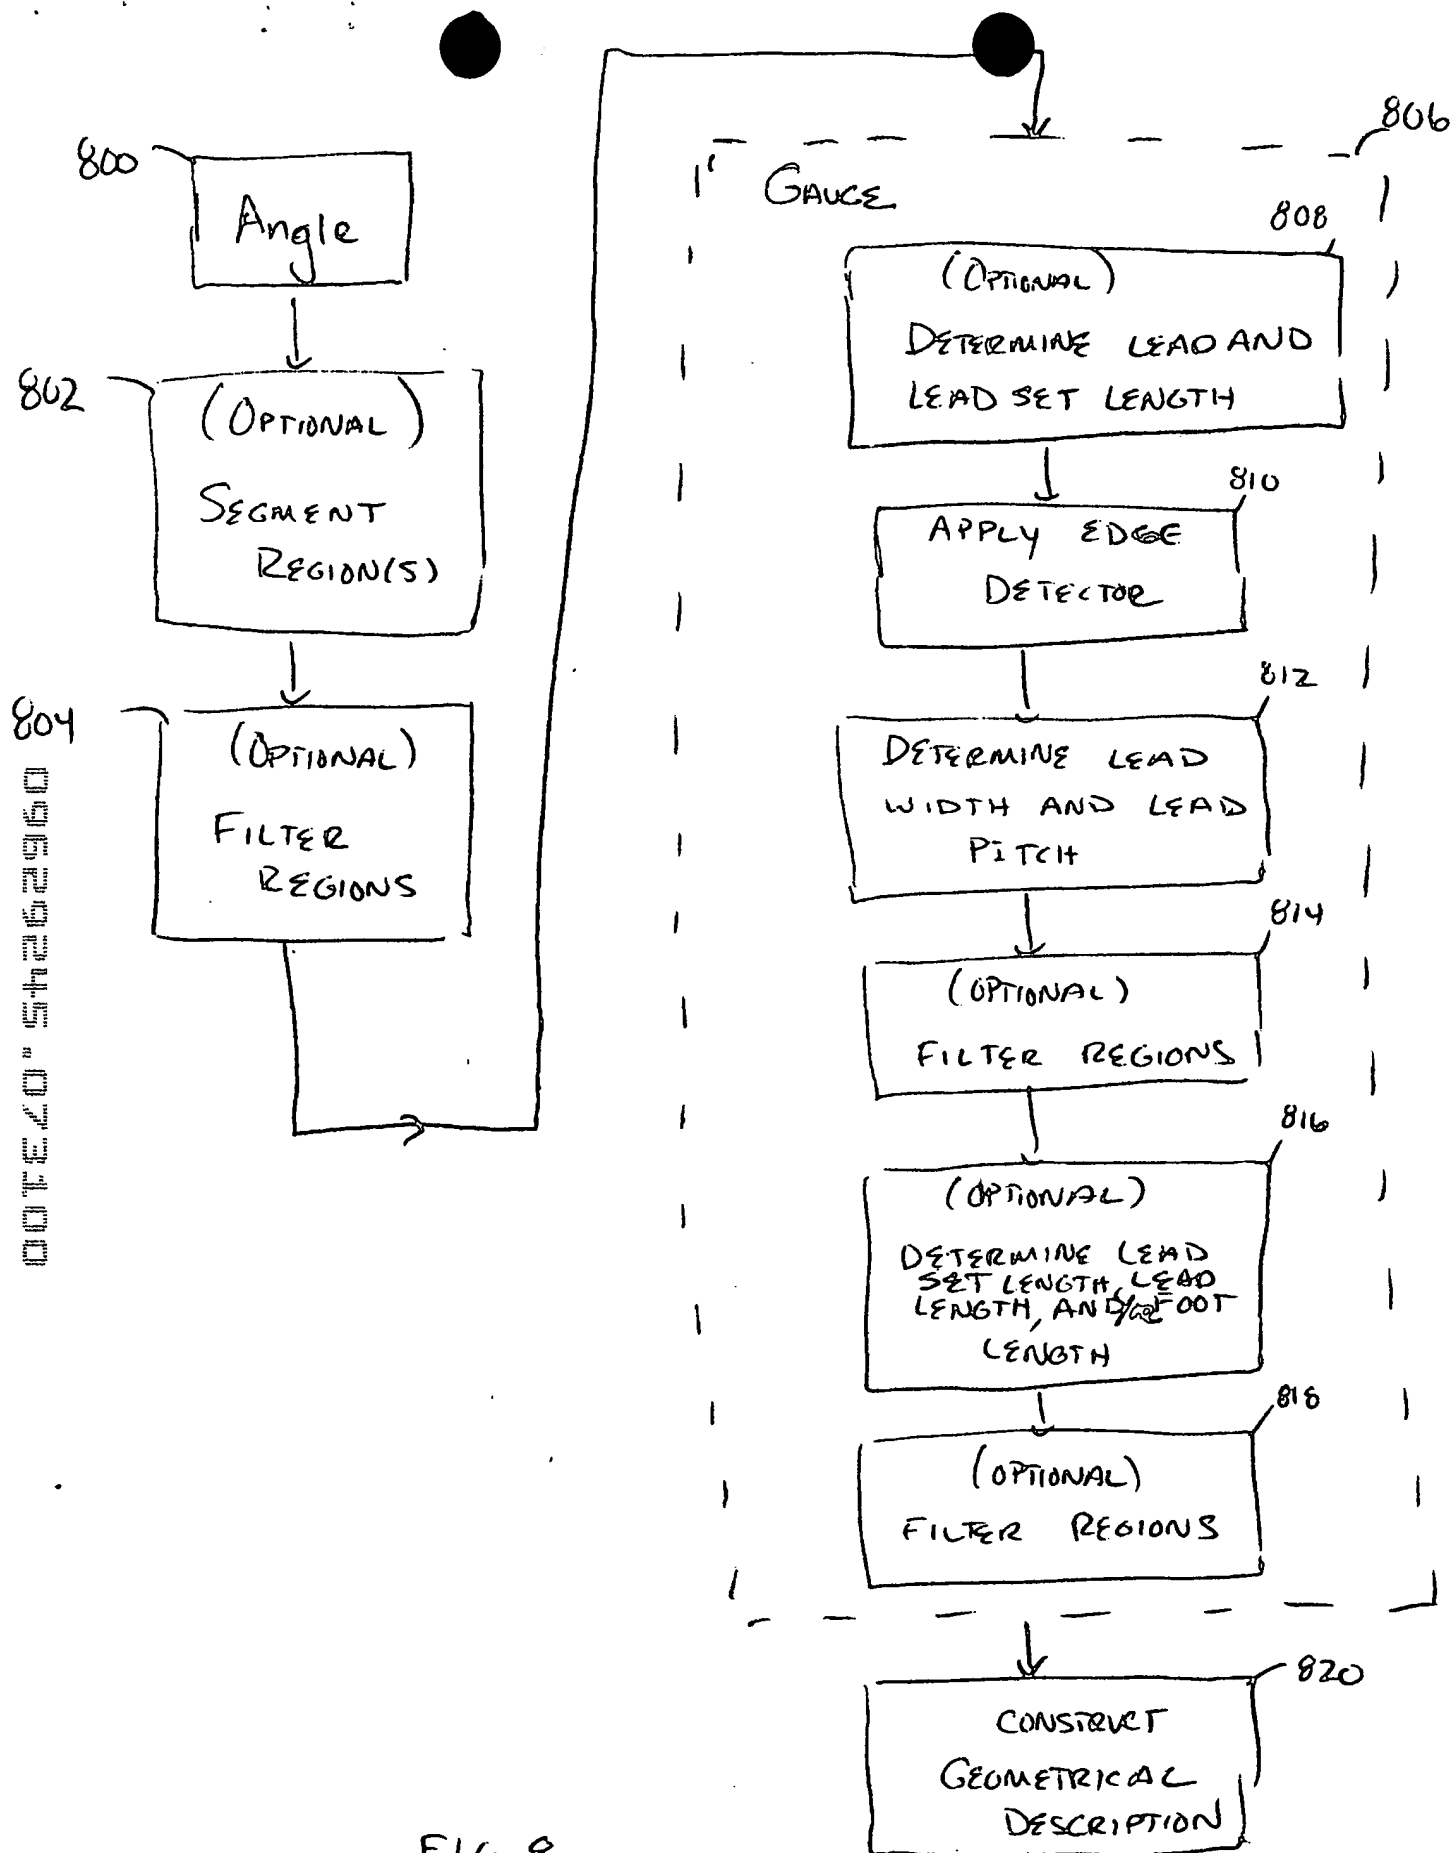 800
Angle
802
(OPTIONAL)
SEGMENT
REGION(S)
804
(OPTIONAL)
FILTER
REGIONS
09629245.073100
806
GAUGE
808
(OPTIONAL)
DETERMINE LEAD AND
LEAD SET LENGTH
810
APPLY EDGE
DETECTOR
812
DETERMINE LEAD
WIDTH AND LEAD
PITCH
814
(OPTIONAL)
FILTER REGIONS
816
(OPTIONAL)
DETERMINE LEAD
SET LENGTH, LEAD
LENGTH, AND/OR FOOT
LENGTH
818
(OPTIONAL)
FILTER REGIONS
820
CONSTRUCT
GEOMETRICAL
DESCRIPTION
FIG 8